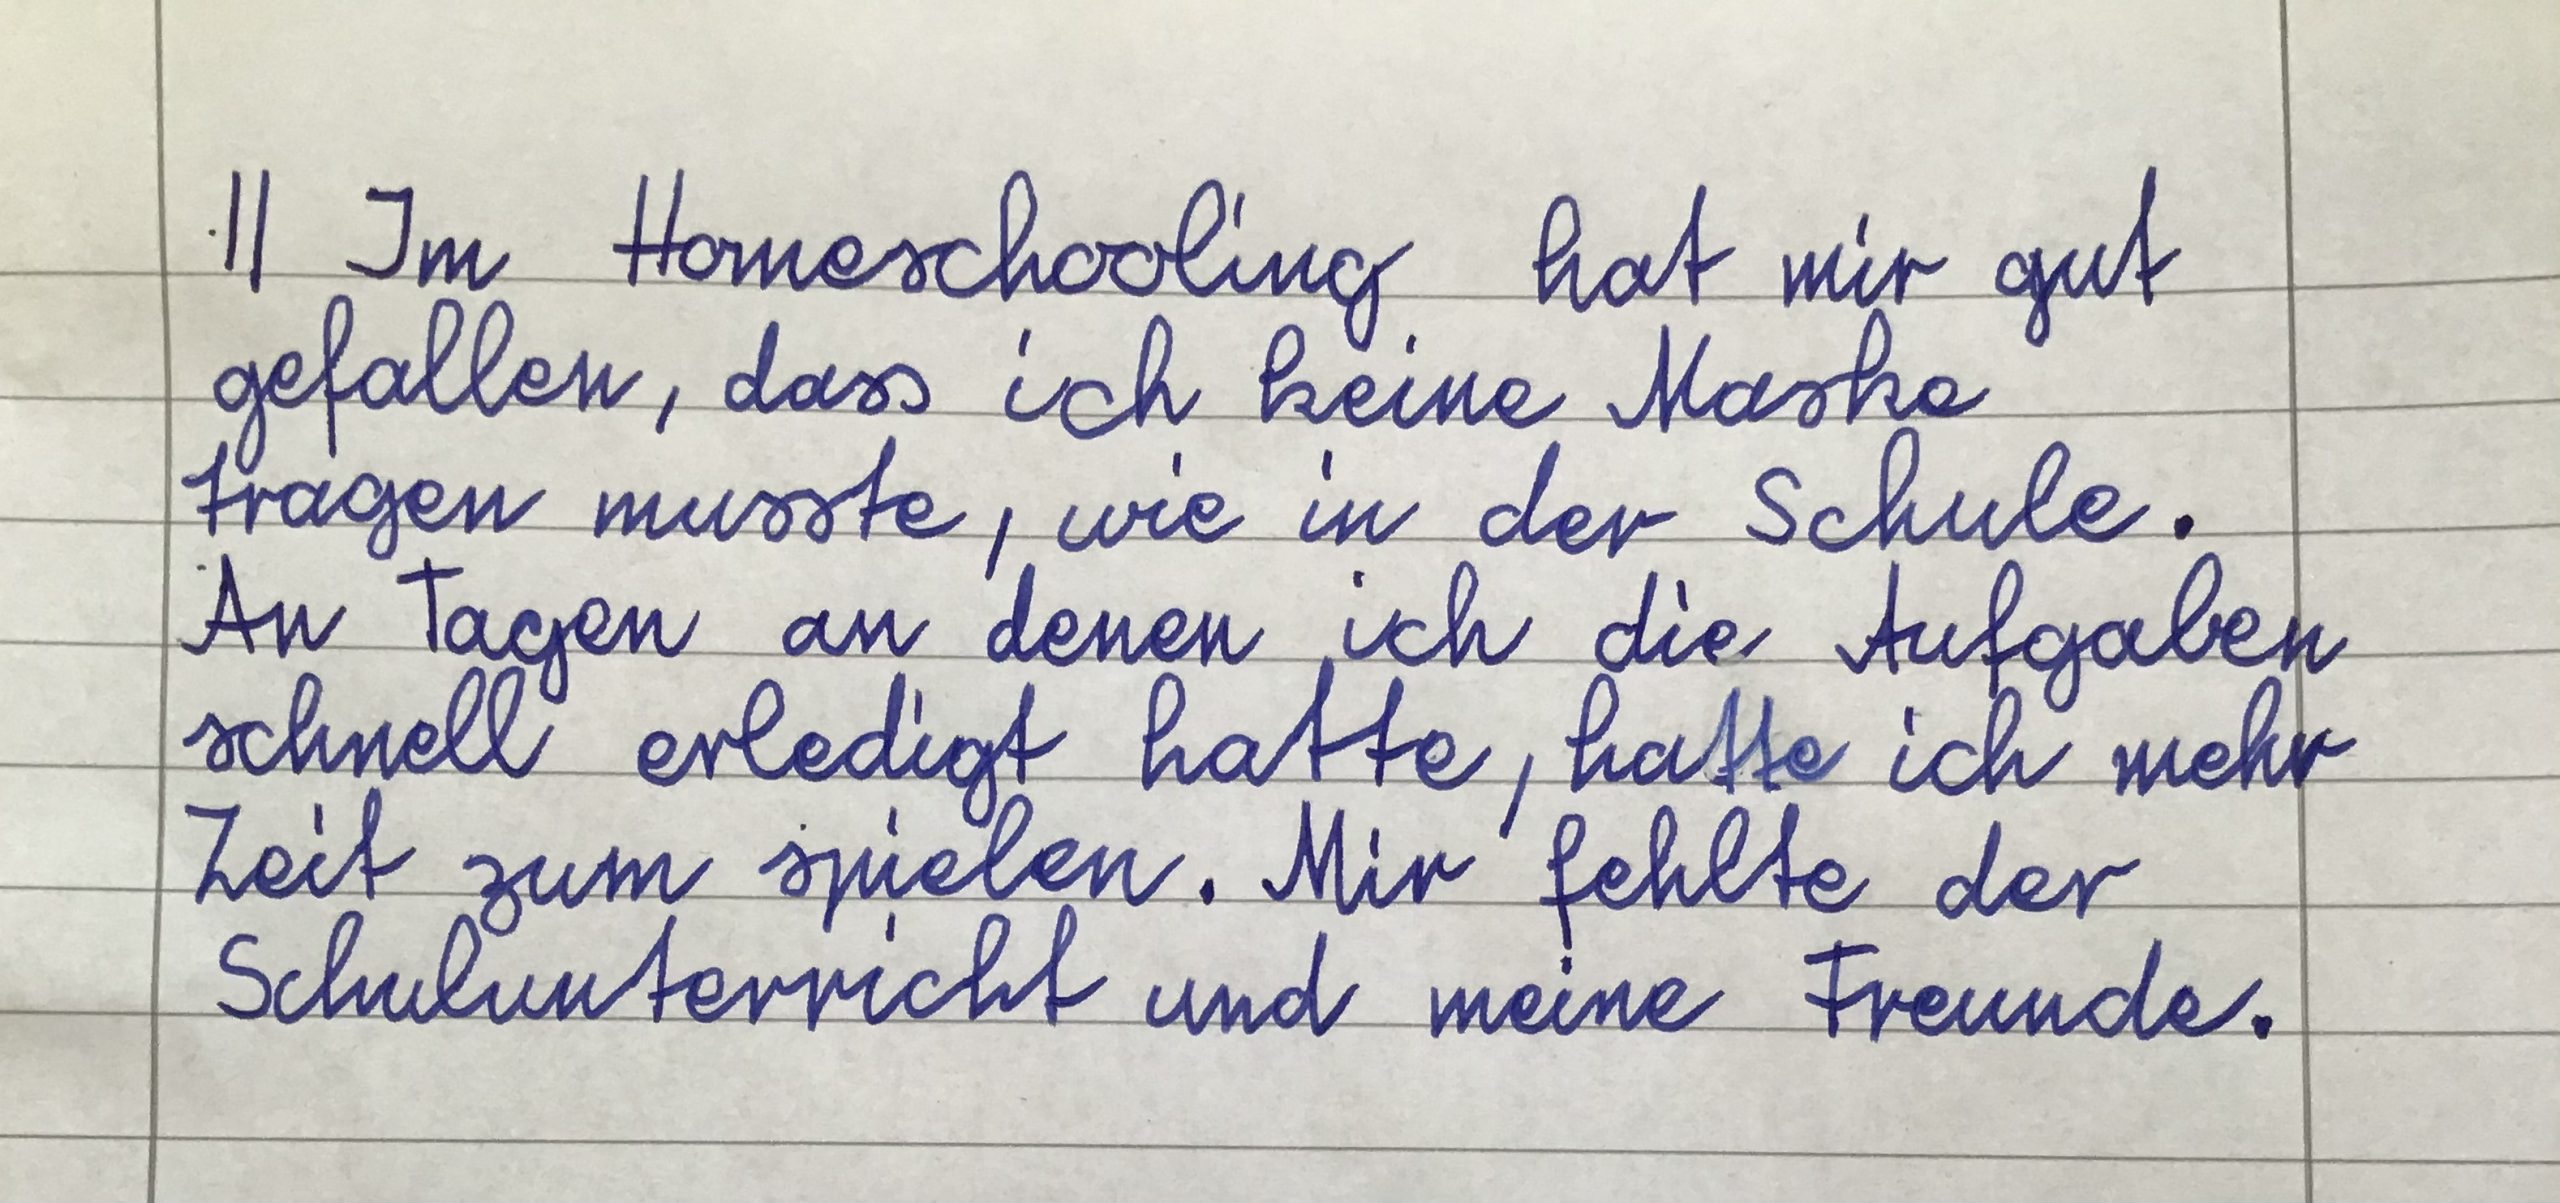 || Im Homeschooling hat mir gut
gefallen, dass ich keine Maske
tragen musste, wie in der Schule.
An Tagen an denen ich die Aufgaben
schnell erledigt hatte, hatte ich mehr
Zeit zum spielen. Mir fehlte der
Schulunterricht und meine Freunde.